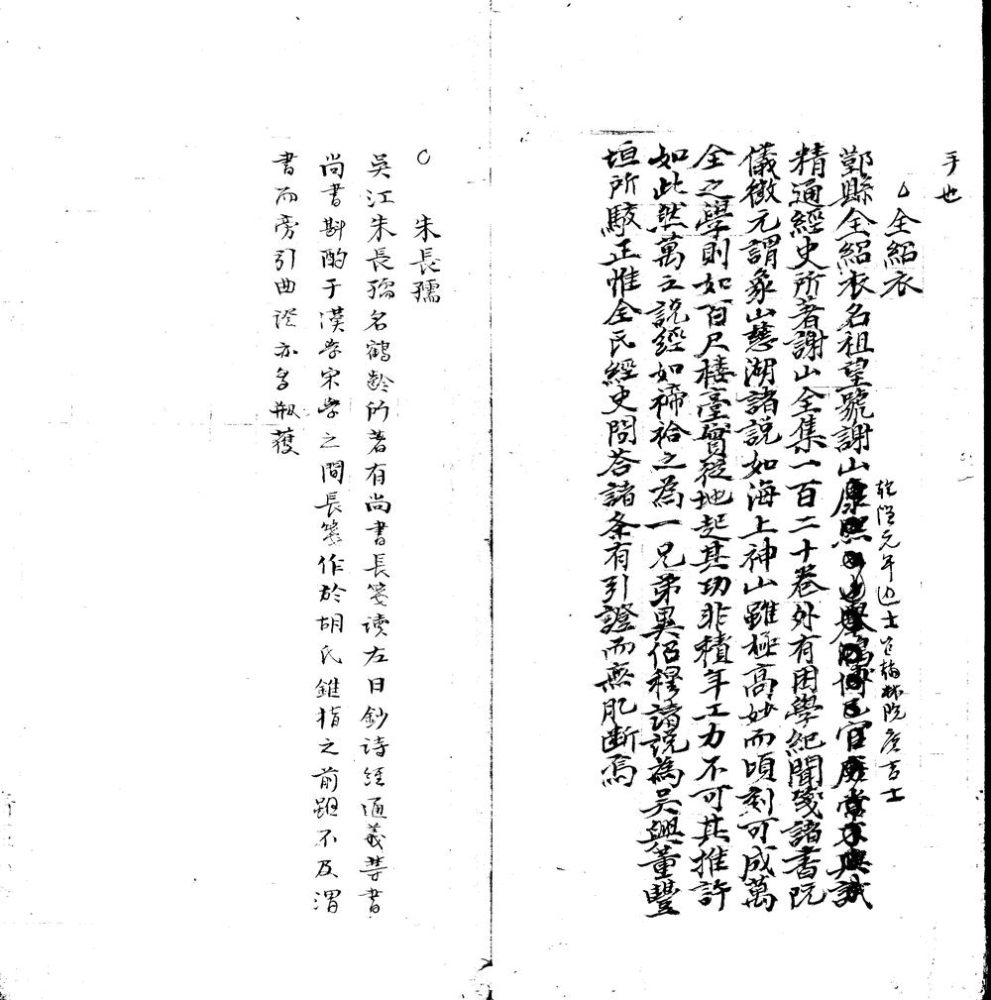 手也
△全紹衣
鄞縣全紹衣名祖望號謝山康熙舉鴻博官庶常
乾隆元年進士官翰林院庶吉士
精通經史所著謝山全集一百二十卷外有困學紀聞箋諸書阮
儀徵元謂象山慈湖諸說如海上神山雖極高妙而頃刻可成萬
全之學則如百尺樓臺實從地起其功非積年工力不可其推許
如此然萬立說經如禘祫之為一兄弟異侶穆諸說為吳興董豐
垣所駁正惟全氏經史問荅諸条有引證而無肊斷焉
○朱長孺
吳江朱長孺名鶴齡所著有尚書長箋读左日鈔詩經通義等書
尚書斟酌于漢学宋学之間長箋作於胡氏錐指之前雖不及渭
書而旁引曲證亦多剏獲